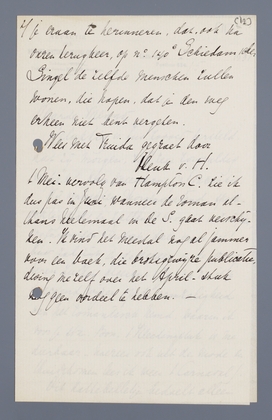 2/ je eraan te herinneren, dat, ook na
onzen terugkeer, op no. 140 Schiedamsche
Singel de zelfde menschen zullen
wonen, die hopen, dat je den weg
erheen niet bent vergeten.
Wees met Truida gegroet door
Henk v. H.
Mei-vervolg van Hampton C. zie ik
dus pas in Juni wanneer de roman al-
thans heelemaal in de S. gaat
Ik vind het meestal nogal jammer
voor een boek, die broksgewijze publicatie,
dwing mezelf over het April-stuk
nog geen oordeel te hebben. —